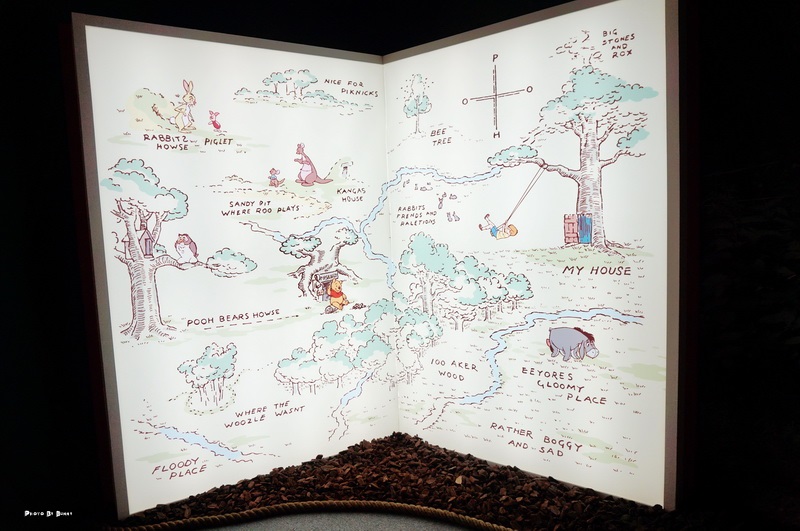 NICE FOR
PIKNICKS
RABBITZ
HOWSE
PIGLET
SANDY PIT
WHERE ROO PLAYS
KANGAS
HOUSE
POOH BEARS HOWSE
WHERE THE
WOOZLE WASNT
FLOODY
PLACE
P
O
O
H
BIG
STONES
AND
ROX
BEE
TREE
RABBITS
FRENDS AND
RALETIONS
MY HOUSE
100 AKER
WOOD
EEYORES
GLOOMY
PLACE
RATHER BOGGY
AND SAD